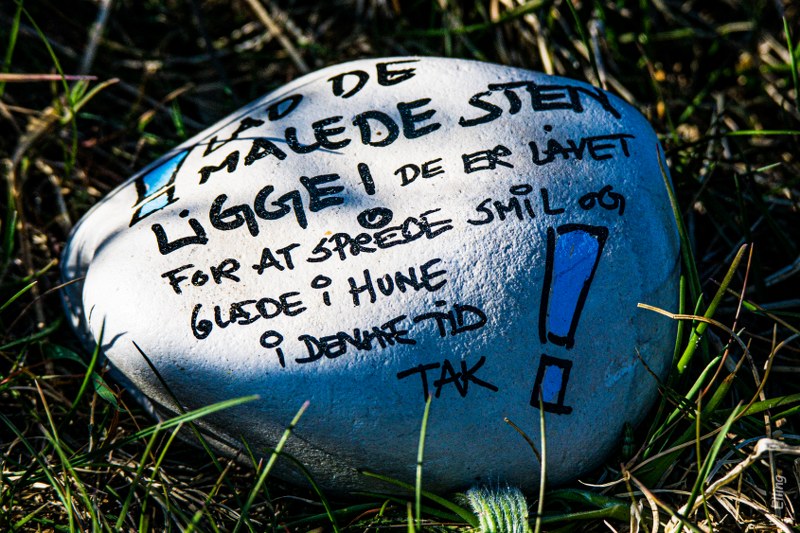 LAD DE
MALEDE STEN
LIGGE! DE ER LAVET
FOR AT SPREDE SMIL OG
GLÆDE i HUNE
i DENNE TID
TAK !
Elling